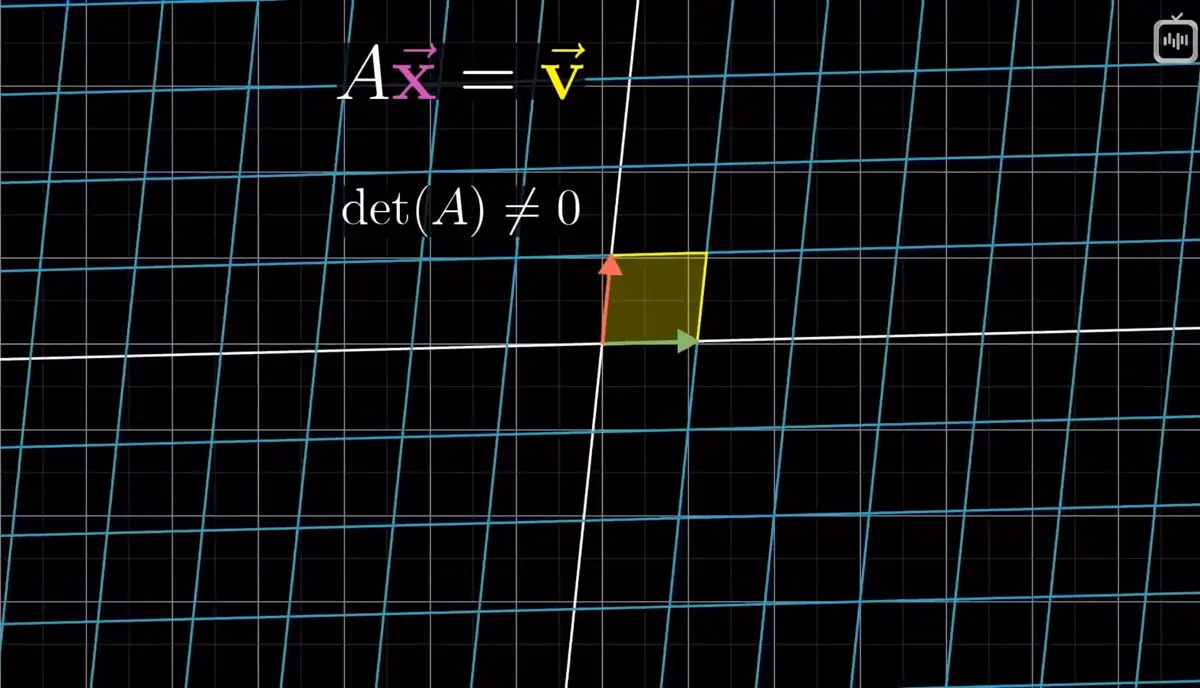 A\vec{x} = \vec{v}
det(A) ≠ 0